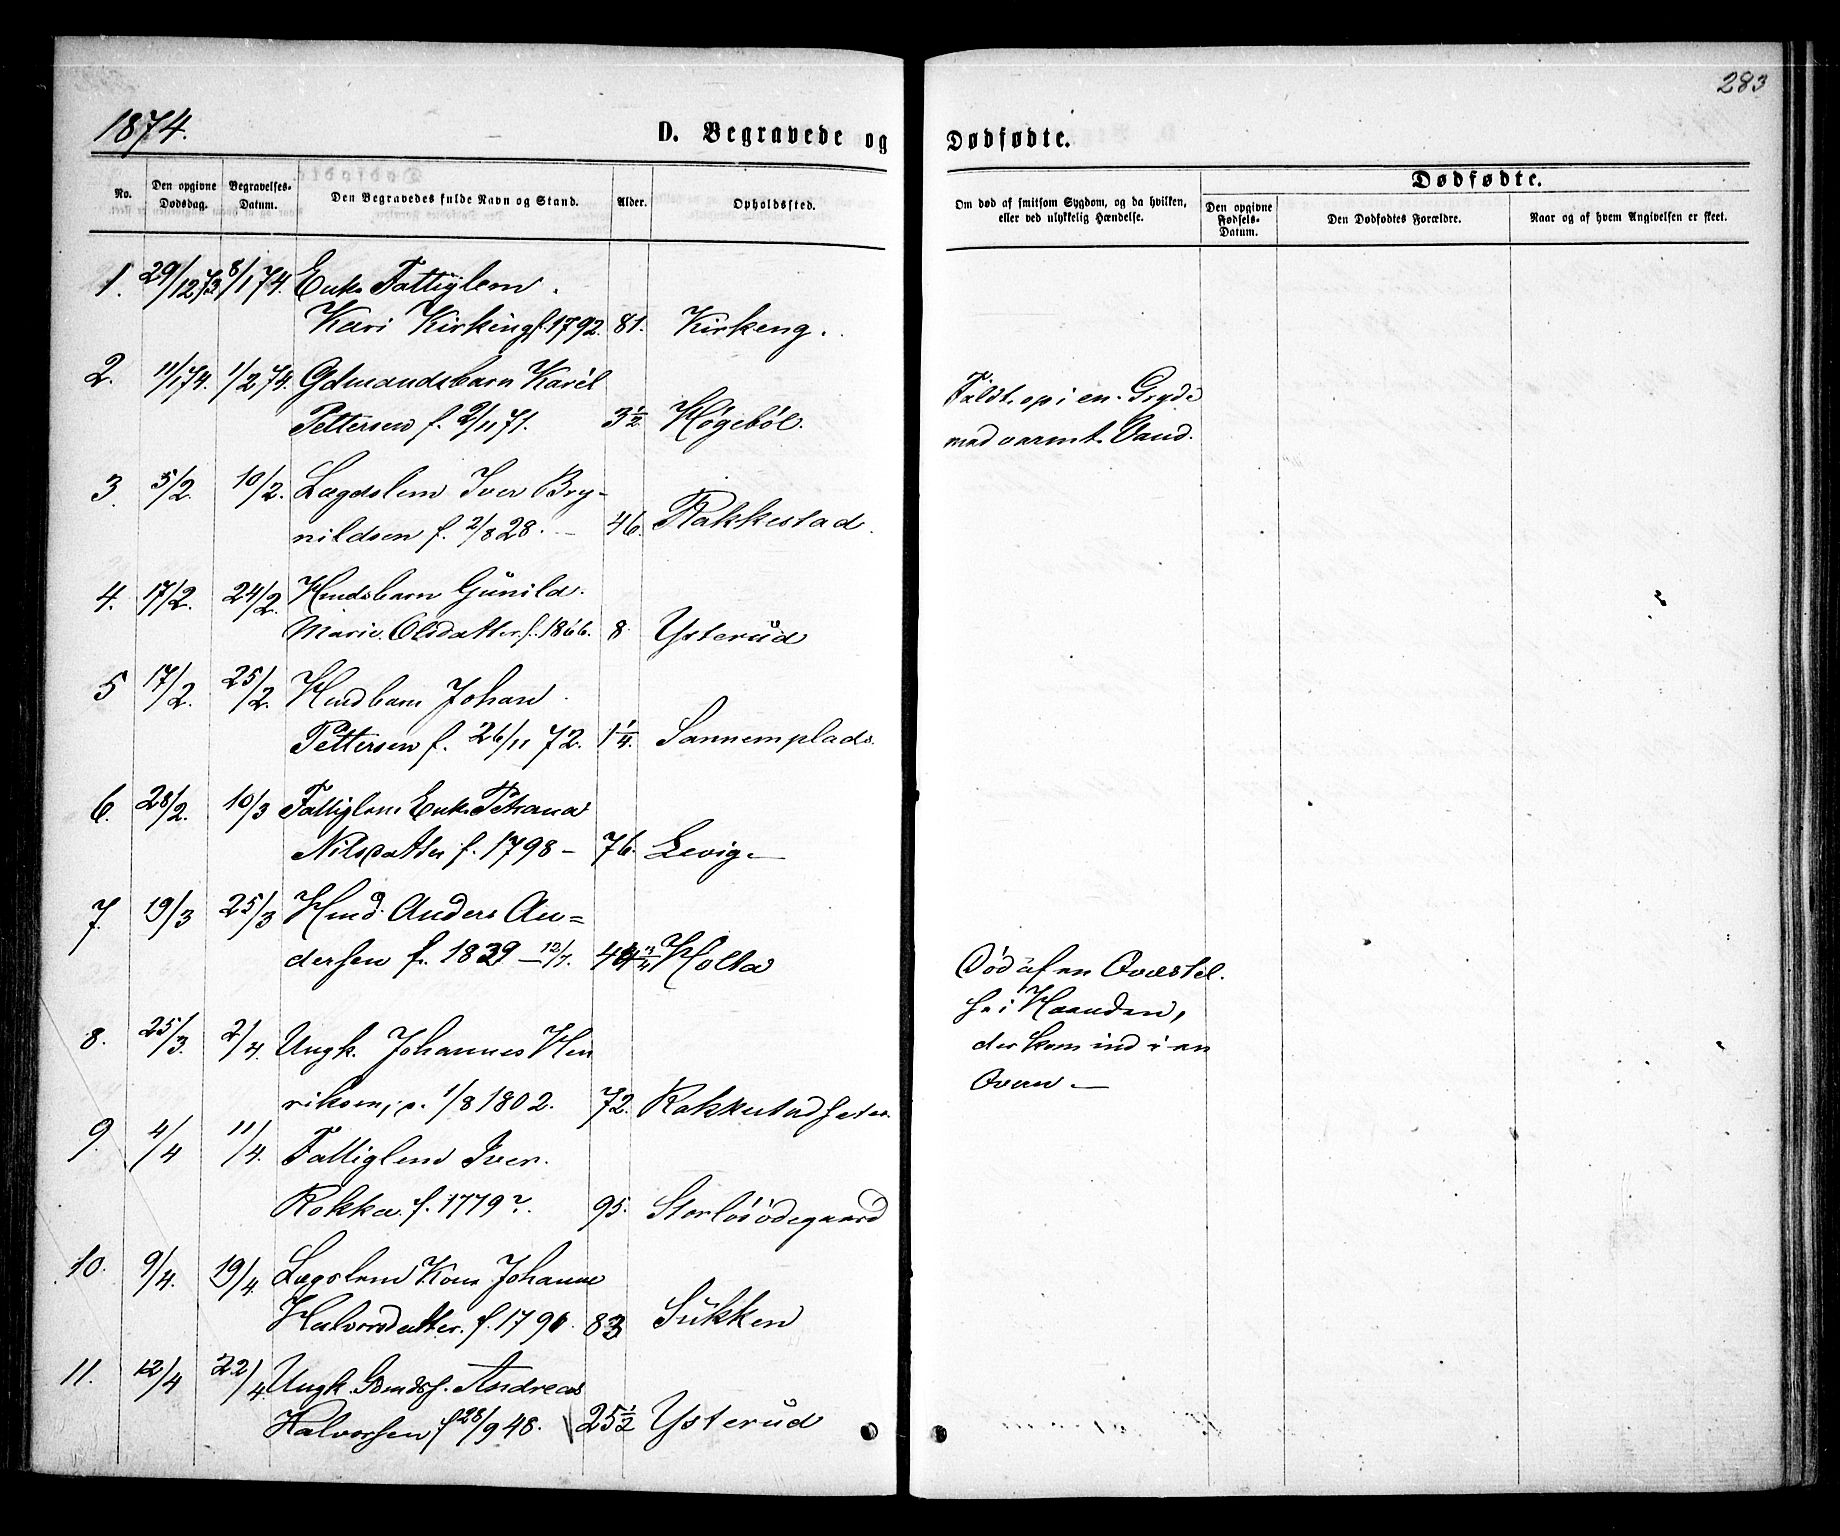 283
1874.
D. Begravede og Dødfødte.
No.
Den opgivne Dødsdag.
Begravelses-Datum.
Den Begravedes fulde Navn og Stand.
Alder.
Opholdssted.
Om død af smitsom Sygdom, og da hvilken, eller ved ulykkelig Hændelse.
Dødfødte.
Den opgivne Fødsels-Datum.
Den Dødfødtes Forældre.
Naar og af hvem Angivelsen er skeet.
1. 29/12 73. 8/1 74. Enke Fattiglem.
Kari Kirkeng f. 1792. 81. Kirkeng.
2. 11/1 74. 1/2 74. Gdmandsbarn Karel
Pettersen f. 2/11 71. 3½ Høgeböl.
Faldt op i en Gryde
med varmt Vand.
3. 5/2. 10/2. Lægdslem Iver Bry-
nildsen f. 2/8 28. — 46. Rakkestad.
4. 17/2. 24/2. Hmdsbarn Gunild
Marie Olsdatter f. 1866. 8 Ysterud
5 17/2. 25/2. Hmdbarn Johan
Pettersen f. 26/11 72. 1¼. Sannemplads.
6. 28/2. 10/3 Fattiglem Enke
Nilsdatter f. 1798 — 76. Levig —
7. 19/3 25/3 Hmd. Anders An=
dersen f. 1829 — 12/7. Holta
Död af en Qvæstel.
se i Haanden,
der kom ind i en
8. 25/3. 2/4. Ungk. Johannes Hen
riksen, 1/8 1802. 72.
9. 4/4 11/4. Fattiglem Iver
Rokke f. 1779? 95. Storlösödegaard
10. 9/4. 19/4. Lægslem Kone Johanne
Halvorsdatter f. 83 Sukken
11. 12/4 22/4. Ungk. Gdmdsf. Andreas
Halvorsen f 28/9 48. 25½ Ysterud